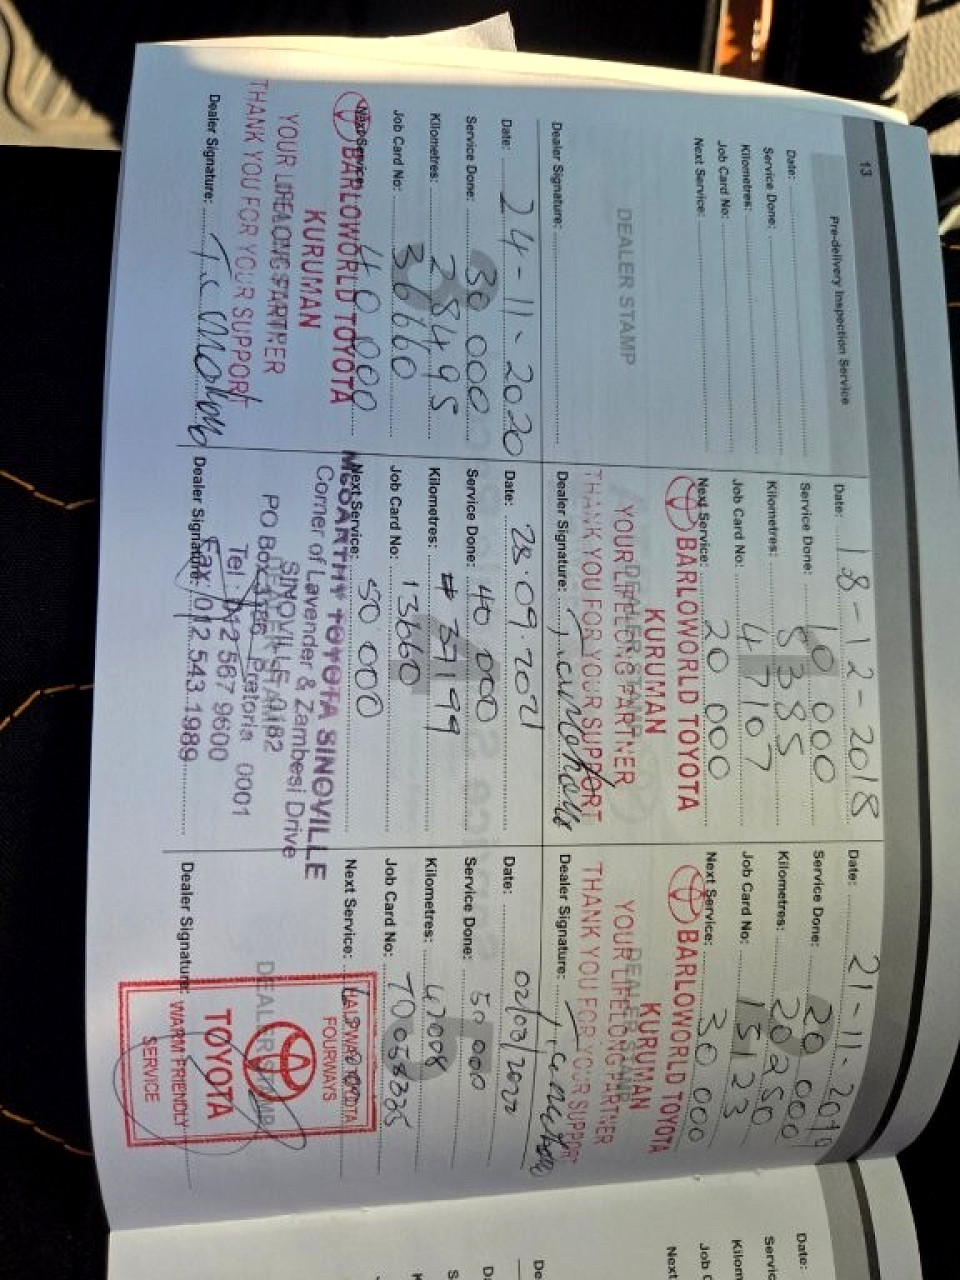 13
Pre-delivery Inspection Service
Date:
Service Done:
Kilometres:
Job Card No:
Next Service:
DEALER STAMP
Dealer Signature:
Date: 18-12-2018
Service Done: 10 000
Kilometres: 8385
Job Card No: 47107
Next Service: 20 000
BARLOWORLD TOYOTA
KURUMAN
YOUR LIFELONG PARTNER
THANK YOU FOR YOUR SUPPORT
DEALER STAMP
Dealer Signature:
Date: 21-11-2019
Service Done: 20 000
Kilometres: 20250
Job Card No: 15123
Next Service: 30 000
BARLOWORLD TOYOTA
KURUMAN
YOUR LIFELONG PARTNER
THANK YOU FOR YOUR SUPPORT
DEALER STAMP
Dealer Signature:
Date: 24-11-2020
Service Done: 30 000
Kilometres: 28495
Job Card No: 36660
Next Service: 40 000
BARLOWORLD TOYOTA
KURUMAN
YOUR LIFELONG PARTNER
THANK YOU FOR YOUR SUPPORT
Dealer Signature:
Date: 28.09.2021
Service Done: 40 000
Kilometres: # 37199
Job Card No: 13660
Next Service: 50 000
MCCARTHY TOYOTA SINOVILLE
Corner of Lavender & Zambesi Drive
SINOVILLE 0182
PO Box Pretoria 0001
Tel 012 567 9600
Fax: 012 543 1989
Dealer Signature:
Date: 02/03/2022
Service Done: 50 000
Kilometres: 47008
Job Card No:
Next Service:
HALFWAY TOYOTA
FOURWAYS
DEALER STAMP
TOYOTA
WARM FRIENDLY
SERVICE
Dealer Signature:
Date: